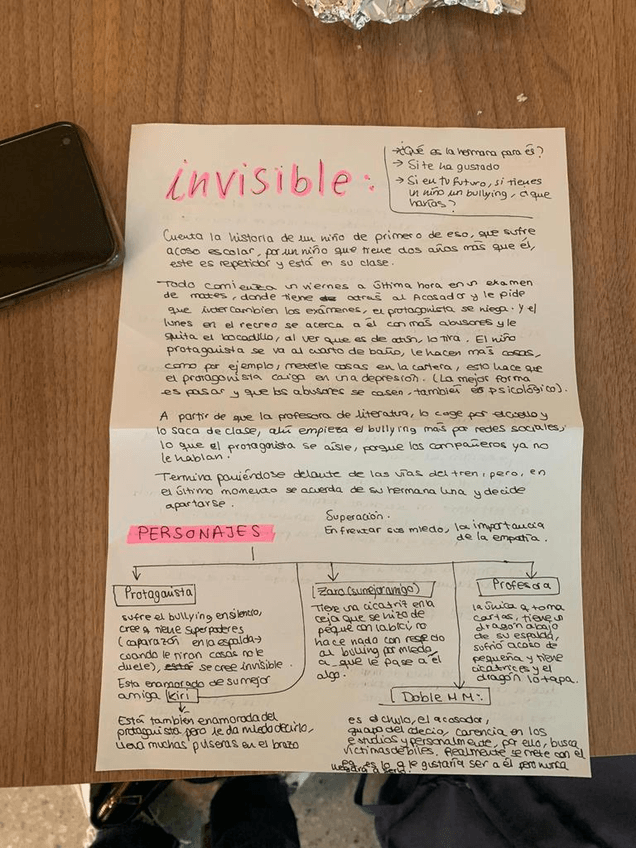 invisible:
→ ¿Qué es la hermana para él?
→ Si te ha gustado
→ Si en tu futuro, si tienes
un niño un bullying, ¿que
harías?
Cuenta la historia de un niño de primero de eso, que sufre
acoso escolar, por un niño que tiene dos años más que él,
este es repetidor y está en su clase.
Todo comienza un viernes a última hora en un examen
de mates, donde tiene atras al Acosador y le pide
que intercambien los exámenes, el protagonista se niega. Y el
lunes en el recreo se acerca a él con más abusones y le
quita el bocadillo, al ver que es de atún, lo tira. El niño
protagonista se va al cuarto de baño, le hacen más cosas,
como por ejemplo, meterle cosas en la cartera, esto hace que
el protagonista caiga en una depresión. (La mejor forma
es pasar y que los abusones se cansen, también es psicológico).
A partir de que la profesora de literatura, lo coge por el cuello y
lo saca de clase, ahí empieza el bullying más por redes sociales,
lo que el protagonista se aisle, porque los compañeros ya no
le hablan.
Termina poniéndose delante de las vías del tren, pero, en
el último momento se acuerda de su hermana Luna y decide
apartarse.
Superación.
Enfrentar sus miedo, la importancia
de la empatía.
PERSONAJES
Protagonista
sufre el bullying en silencio,
cree q tiene superpoderes
(caparazón en la espalda→
cuando le tiran cosas no le
duele), se cree invisible.
Esta enamorado de su mejor
amiga Kiri
Está también enamorada del
protagonista pero le da miedo decirlo,
lleva muchas pulseras en el brazo
Zaro (su mejor amigo)
Tiene una cicatriz en la
ceja que se hizo de
peque con la bici no
hace nada con respecto
al bulling por miedo
a q le pase a él
algo.
Profesora
la única q toma
cartas, tiene un
dragón abajo
de su espalda,
sufrió acoso de
pequeña y tiene
cicatrices y el
dragón lo tapa.
Doble MM:
es el chulo, el acosador,
guapo del colegio, carencia en los
estudios y personalmente, por ello, busca
víctimas débiles. Realmente se mete con el
es lo q le gustaría ser a él pero nunca